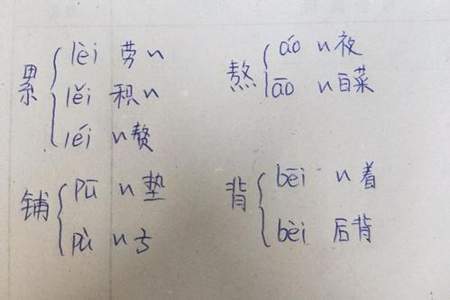 累
lèi 劳~
lěi 积~
léi ~赘
熬
áo ~夜
āo ~白菜
铺
pū ~垫
pù ~
背
bēi ~着
bèi 后背